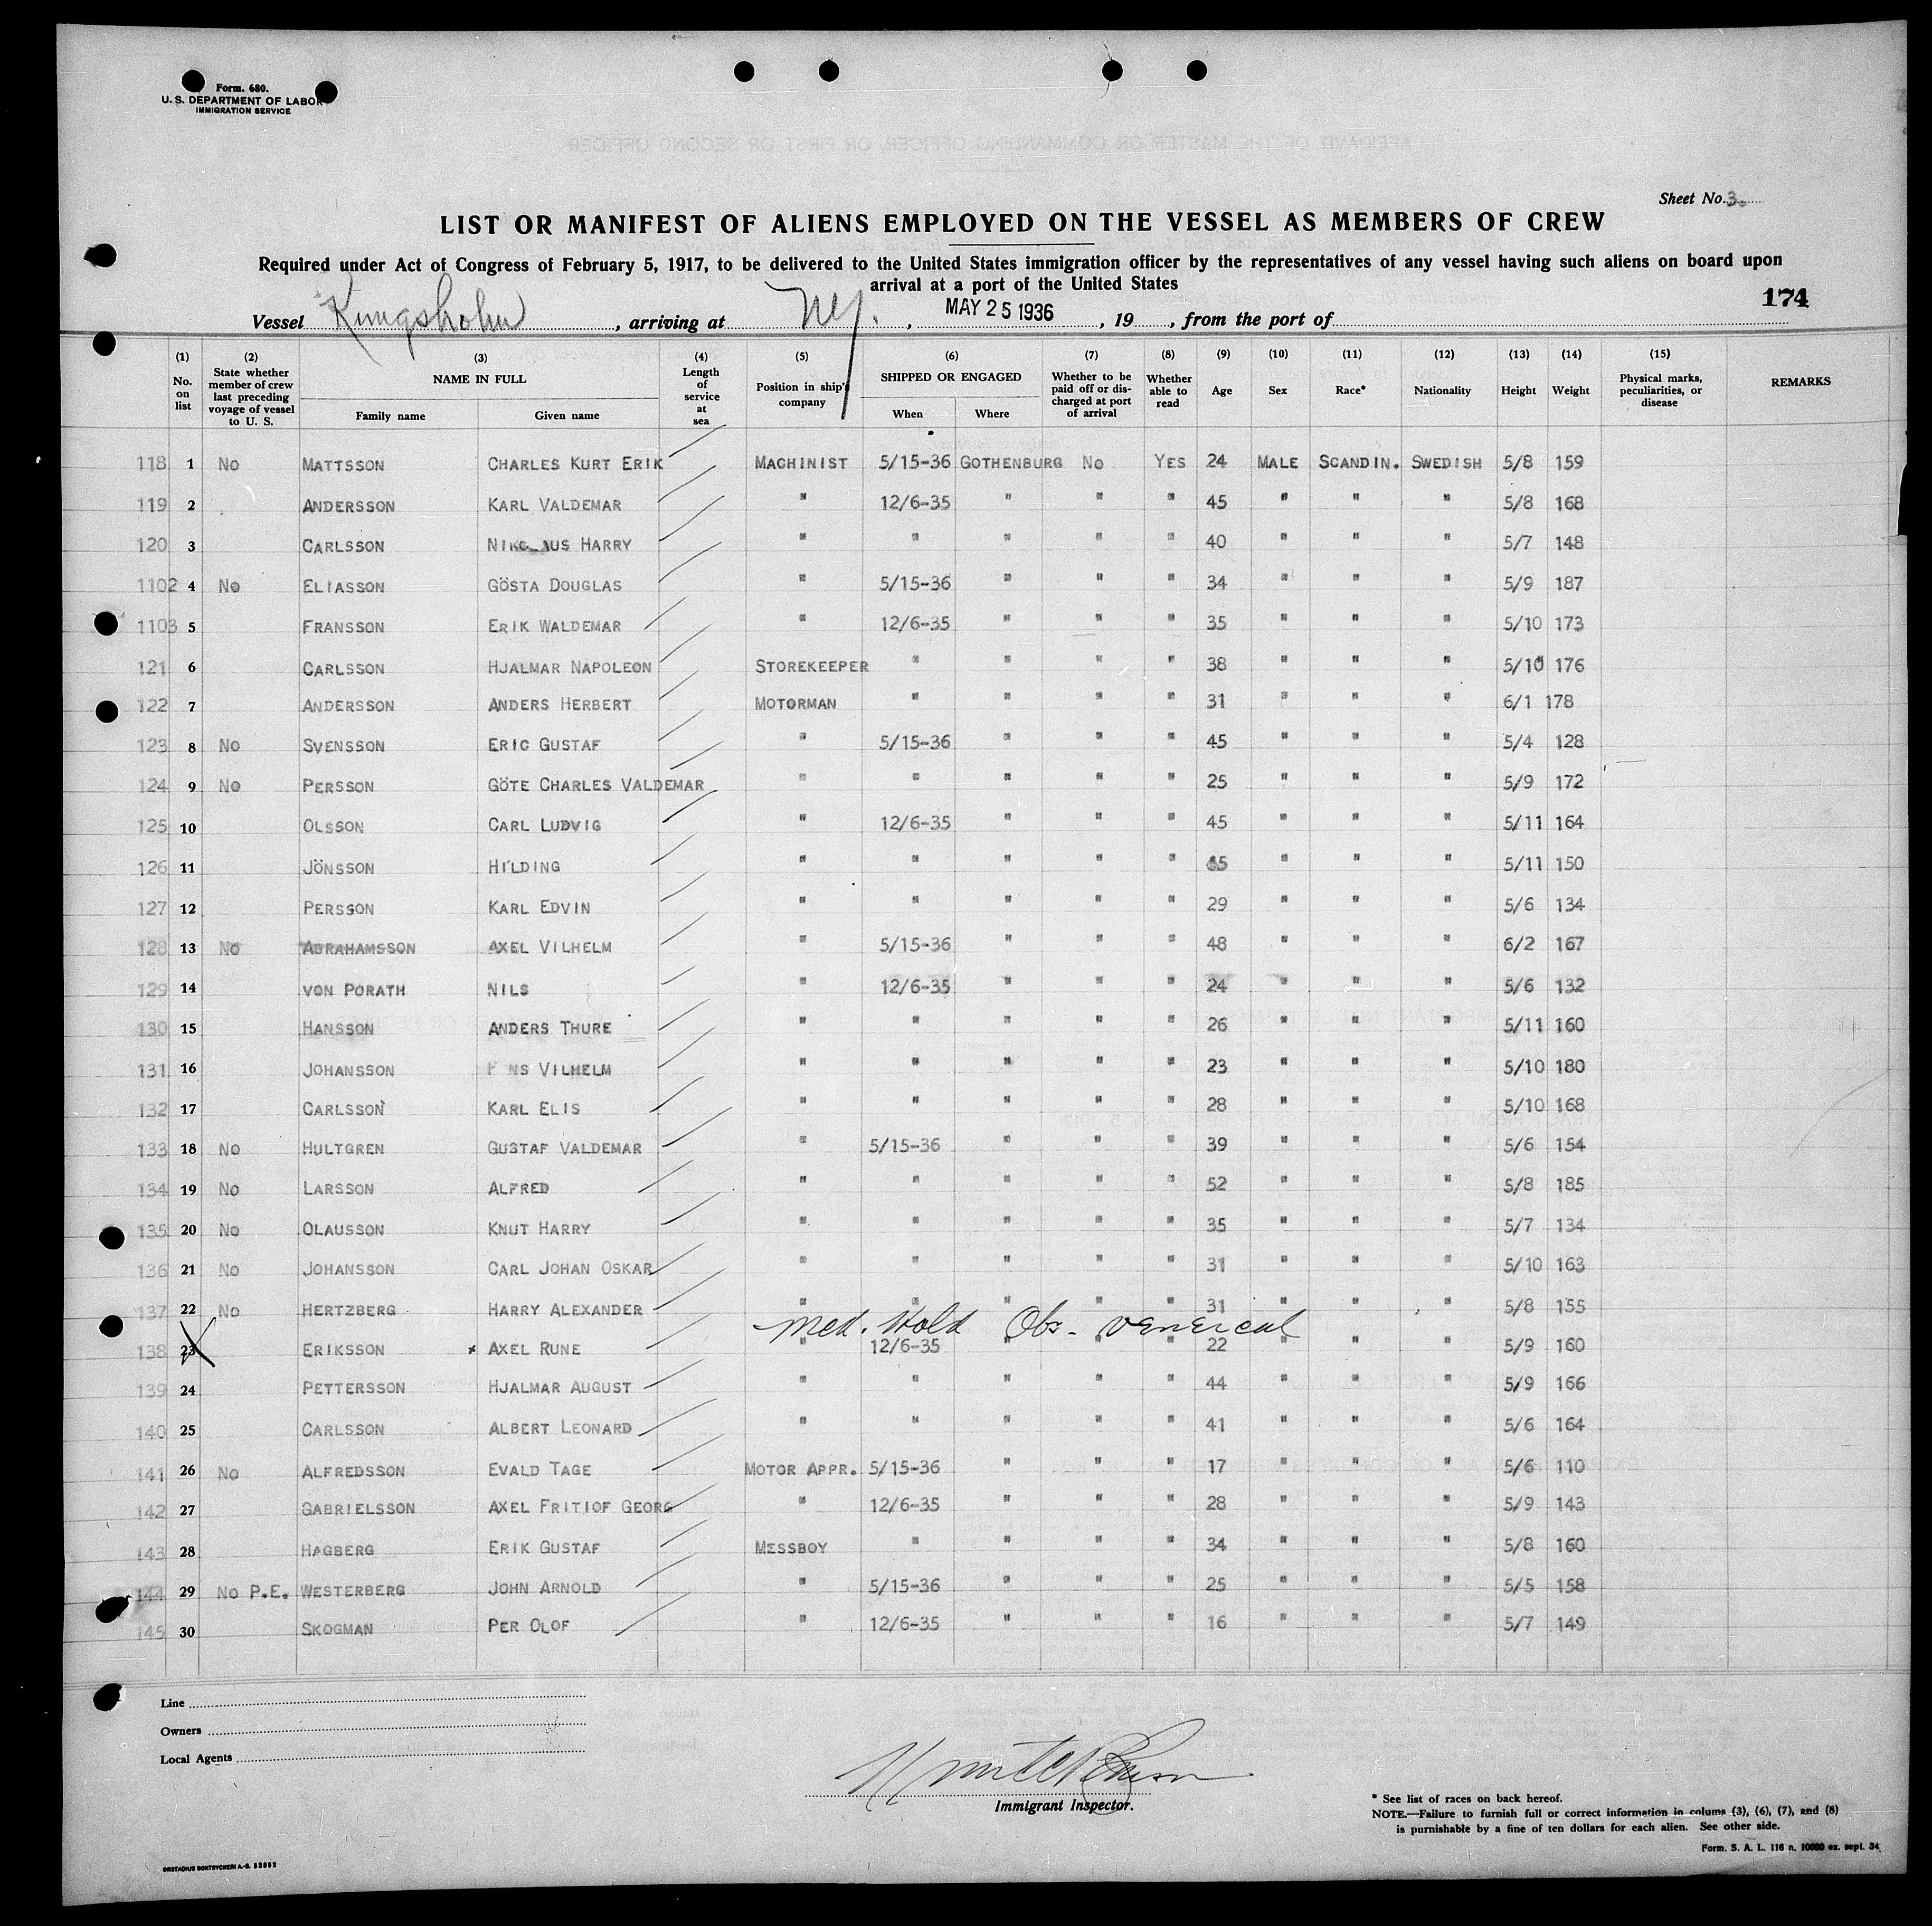 Form. 680.
U. S. DEPARTMENT OF LABOR
IMMIGRATION SERVICE
Sheet No. 3.
LIST OR MANIFEST OF ALIENS EMPLOYED ON THE VESSEL AS MEMBERS OF CREW
Required under Act of Congress of February 5, 1917, to be delivered to the United States immigration officer by the representatives of any vessel having such aliens on board upon
arrival at a port of the United States
174
Vessel Kungsholm, arriving at NY., MAY 25 1936, 19 , from the port of
(1) No. on list (2) State whether member of crew last preceding voyage of vessel to U. S. (3) NAME IN FULL Family name Given name (4) Length of service at sea (5) Position in ship's company (6) SHIPPED OR ENGAGED When Where (7) Whether to be paid off or discharged at port of arrival (8) Whether able to read (9) Age (10) Sex (11) Race* (12) Nationality (13) Height (14) Weight (15) Physical marks, peculiarities, or disease REMARKS
118 1 No MATTSSON CHARLES KURT ERIK MACHINIST 5/15-36 GOTHENBURG No YES 24 MALE SCANDIN. SWEDISH 5/8 159
119 2 ANDERSSON KARL VALDEMAR " 12/6-35 " " " 45 " " " 5/8 168
120 3 CARLSSON HARRY " " " " " 40 " " " 5/7 148
1102 4 No ELIASSON GÖSTA DOUGLAS " 5/15-36 " " " 34 " " " 5/9 187
1103 5 FRANSSON ERIK WALDEMAR " 12/6-35 " " " 35 " " " 5/10 173
121 6 CARLSSON HJALMAR NAPOLEON STOREKEEPER " " " " 38 " " " 5/10 176
122 7 ANDERSSON ANDERS HERBERT MOTORMAN " " " " 31 " " " 6/1 178
123 8 No SVENSSON ERIC GUSTAF " 5/15-36 " " " 45 " " " 5/4 128
124 9 No PERSSON GÖTE CHARLES VALDEMAR " " " " " 25 " " " 5/9 172
125 10 OLSSON CARL LUDVIG " 12/6-35 " " " 45 " " " 5/11 164
126 11 JÖNSSON HILDING " " " " " " " " 5/11 150
127 12 PERSSON KARL EDVIN " " " " " 29 " " " 5/6 134
128 13 No ABRAHAMSSON AXEL VILHELM " 5/15-36 " " " 48 " " " 6/2 167
129 14 VON PORATH NILS " 12/6-35 " " " 24 " " " 5/6 132
130 15 HANSSON ANDERS THURE " " " " " 26 " " " 5/11 160
131 16 JOHANSSON VILHELM " " " " " 23 " " " 5/10 180
132 17 CARLSSON KARL ELIS " " " " " 28 " " " 5/10 168
133 18 No HULTGREN GUSTAF VALDEMAR " 5/15-36 " " " 39 " " " 5/6 154
134 19 No LARSSON ALFRED " " " " " 52 " " " 5/8 185
135 20 No OLAUSSON KNUT HARRY " " " " " 35 " " " 5/7 134
136 21 No JOHANSSON CARL JOHAN OSKAR " " " " " 31 " " " 5/10 163
137 22 No HERTZBERG HARRY ALEXANDER " " " " " 31 " " " 5/8 155
Med. Hold Obs - venereal
138 23 ERIKSSON x AXEL RUNE " 12/6-35 " " " 22 " " " 5/9 160
139 24 PETTERSSON HJALMAR AUGUST " " " " " 44 " " " 5/9 166
140 25 CARLSSON ALBERT LEONARD " " " " " 41 " " " 5/6 164
141 26 No ALFREDSSON EVALD TAGE MOTOR APPR. 5/15-36 " " " 17 " " " 5/6 110
142 27 GABRIELSSON AXEL FRITIOF GEORG " 12/6-35 " " " 28 " " " 5/9 143
143 28 HAGBERG ERIK GUSTAF MESSBOY " " " " 34 " " " 5/8 160
144 29 No P.E. WESTERBERG JOHN ARNOLD " 5/15-36 " " " 25 " " " 5/5 158
145 30 SKOGMAN PER OLOF " 12/6-35 " " " 16 " " " 5/7 149
Line
Owners
Local Agents
Immigrant Inspector.
* See list of races on back hereof.
NOTE.—Failure to furnish full or correct information in colums (3), (6), (7), and (8)
is purnishable by a fine of ten dollars for each alien. See other side.
Form. S. A. L. 116 n. 10000 ex. sept. 34